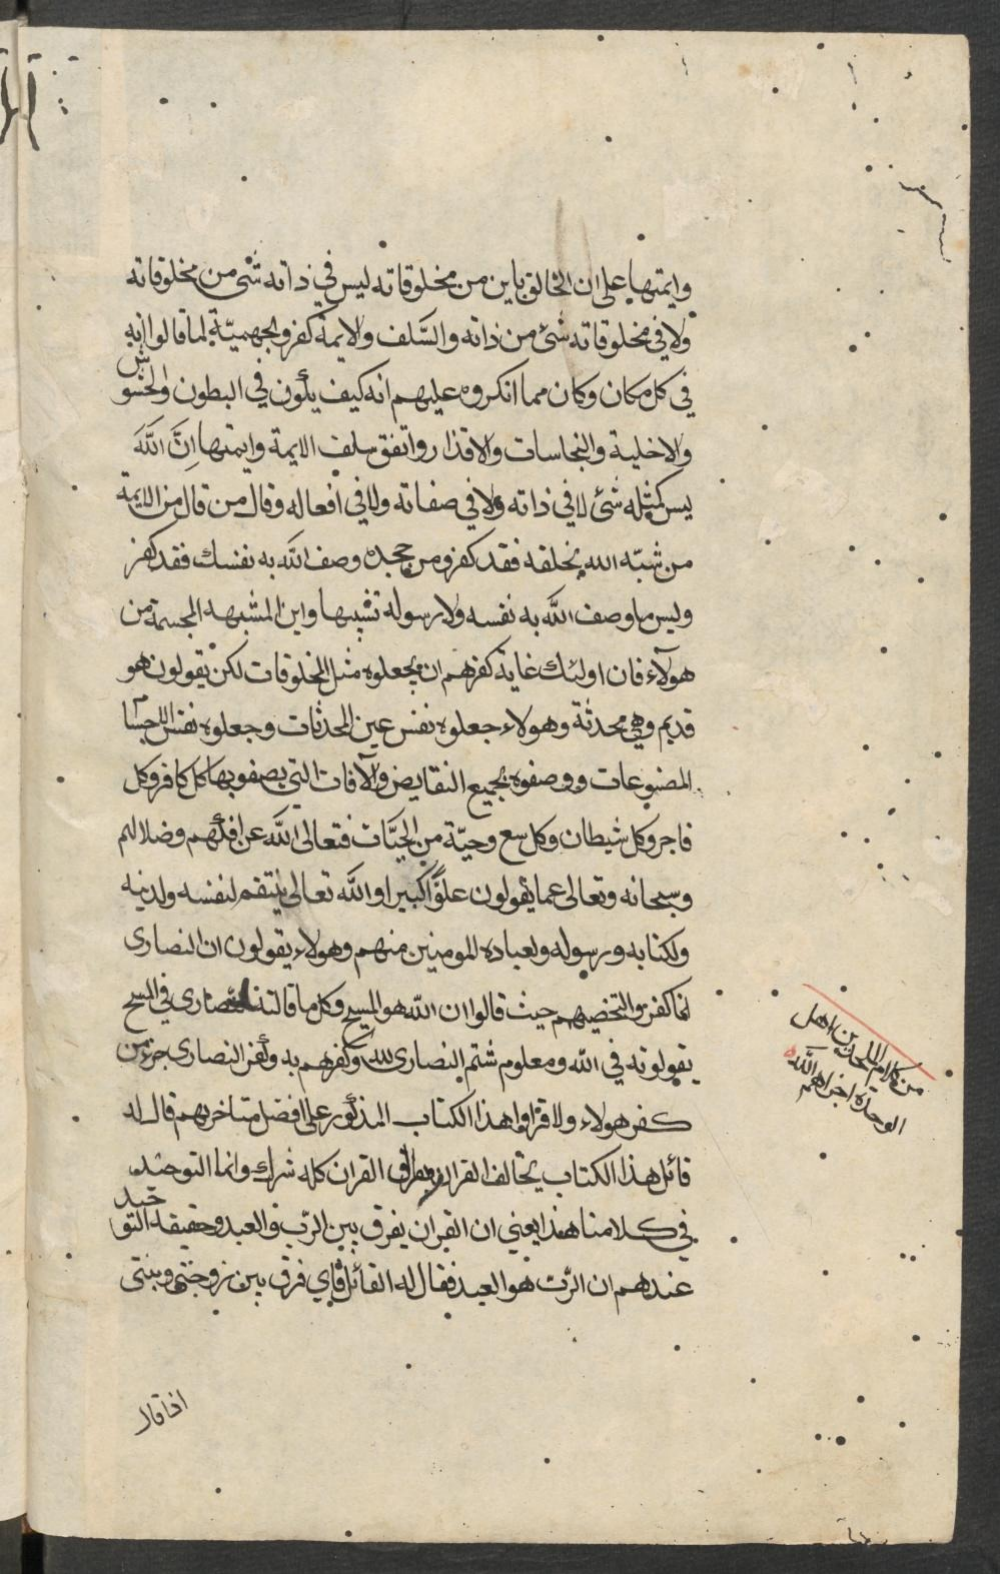 وايمتها على ان الخالق باين من مخلوقاته ليس في ذاته شي من مخلوقاته
ولا في مخلوقاته شئ من ذاته والسلف والايمة كفرو الجهمية لما قالوا انه
في كل مكان وكان مما انكروه عليهم انه كيف يكون في البطون والحشوش
والاخلية والنجاسات والاقذار واتفق سلف الايمة وايمتها ان الله
ليس كمثله شئ لا في ذاته ولا في صفاته ولا في افعاله وقال من قال من الايمة
من شبه الله بخلقه فقد كفر ومن جحد ما وصف الله به نفسك فقد كفر
وليس ما وصف الله به نفسه ولا رسوله تشبيها واين المشبهه المجسمة من
هولآء فان اوليك غاية كفرهم ان يجعلوه مثل المخلوقات لكن يقولون هو
قديم وهي محدثة وهولاء جعلوه نفس عين المحدثات وجعلوه نفس الاجسا
المصنوعات ووصفوه بجميع النقايض والآفات التي يصفو بها كل كافر وكل
فاجر وكل شيطان وكل سبع وحية من الحيات فتعالى الله عن افكهم وضلالهم
وسبحانه وتعالى عما يقولون علوا كبيرا والله تعالى ينتقم لنفسه ولدينه
ولكتابه ورسوله ولعباده المومنين منهم وهولاء يقولون ان النصارى
انما كفرو التخصيهم حيث قالوا ان الله هو المسيح وكل ما قالته النصارى في المسيح
يقولونه في الله ومعلوم شتم النصارى لله وكفرهم به وكفر النصارى جزء من
كفر هولاء ولا قراوا هذا الكتاب المذكور على افضل متاخريهم قال له
قائل هذا الكتاب يخالف القران فقال القران كله شرك وانما التوحيد
في كلامنا هذا يعني ان القران يفرق بين الرب والعبد وحقيقه التوحيد
عندهم ان الرب هو العبد فقال له القائل فاي فرق بين زوجتي وبنتي
اذا قال
من كلام الملحدين اهل
الوحدة اخزاهم الله